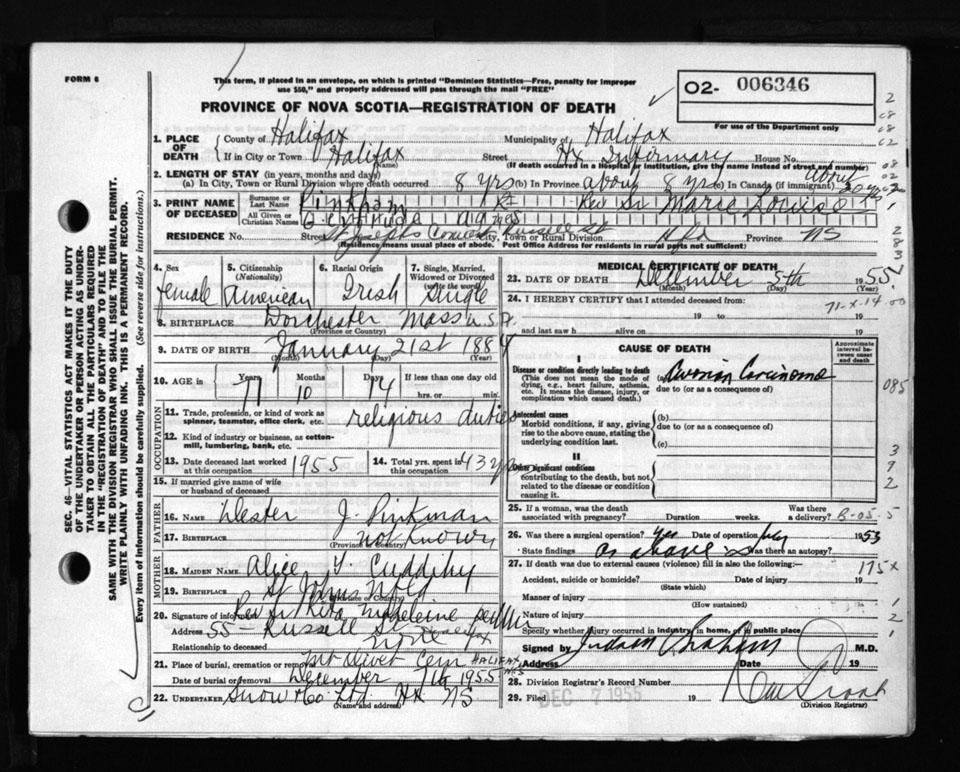 FORM 6
This form, if placed in an envelope, on which is printed "Dominion Statistics—Free, penalty for improper
use $50," and properly addressed will pass through the mail "FREE"
O2- 006346
For use of the Department only
PROVINCE OF NOVA SCOTIA—REGISTRATION OF DEATH
1. PLACE OF DEATH
County of Halifax Municipality of Halifax
If in City or Town Halifax Street Hx Infirmary House No.
(Name) (If death occurred in a Hospital or Institution, give the name instead of street and number)
2. LENGTH OF STAY (in years, months and days)
(a) In City, Town or Rural Division where death occurred 8 yrs (b) In Province about 8 yrs (c) In Canada (if immigrant) about
3. PRINT NAME OF DECEASED
Surname or Last Name Pinkham Rev Sr Marie Louise
All Given or Christian Names Gertrude Agnes
RESIDENCE No. Street St Josephs Convent Russell St City, Town or Rural Division Hfx Province NS
(Residence means usual place of abode. Post Office Address for residents in rural parts not sufficient)
4. Sex female
5. Citizenship (Nationality) American
6. Racial Origin Irish
7. Single, Married, Widowed or Divorced (write the word) Single
8. BIRTHPLACE Dorchester Mass U.S.A.
(Province or Country)
9. DATE OF BIRTH January 21st 1884
(Month) (Day) (Year)
10. AGE in Years 71 Months 10 Days 14 If less than one day old
hrs. or min.
OCCUPATION
11. Trade, profession, or kind of work as spinner, teamster, office clerk, etc. religious duties
12. Kind of industry or business, as cotton-mill, lumbering, bank, etc.
13. Date deceased last worked at this occupation 1955
14. Total yrs. spent in this occupation 43 yrs
15. If married give name of wife or husband of deceased
FATHER
16. NAME J. Pinkman
17. BIRTHPLACE not known
(Province or Country)
MOTHER
18. MAIDEN NAME Alice Y. Cuddihy
19. BIRTHPLACE St Johns Nfld
(Province or Country)
20. Signature of informant Rev Sr Rita Madeleine
Address 55 – Russell St Halifax
Relationship to deceased
21. Place of burial, cremation or removal Mt Olivet Cem HALIFAX NS
Date of burial or removal December 7th 1955
22. UNDERTAKER Snow & Co Ltd Hx NS
(Name and address)
MEDICAL CERTIFICATE OF DEATH
23. DATE OF DEATH December 5th 1955
(Month) (Day)
24. I HEREBY CERTIFY that I attended deceased from:
19 to 19
and last saw h alive on 19
CAUSE OF DEATH
Approximate interval between onset and death
I
Disease or condition directly leading to death
(This does not mean the mode of dying, e.g., heart failure, asthenia, etc. It means the disease, injury, or complication which caused death.)
(a) Ovarian Carcinoma
due to (or as a consequence of)
Antecedent causes
Morbid conditions, if any, giving rise to the above cause, stating the underlying condition last.
(b)
due to (or as a consequence of)
(c)
II
Other significant conditions
contributing to the death, but not related to the disease or condition causing it.
25. If a woman, was the death associated with pregnancy? Duration weeks. Was there a delivery?
26. Was there a surgical operation? Yes Date of operation July 1953
State findings as above Was there an autopsy?
27. If death was due to external causes (violence) fill in also the following:—
Accident, suicide or homicide? Date of injury 19
(State which)
Manner of injury
(How sustained)
Nature of injury
Specify whether injury occurred in industry, in home, or in public place
Signed by Judson Graham M.D.
Address Date 19
28. Division Registrar's Record Number
29. Filed DEC 7 1955 19
(Division Registrar)
SEC. 46—VITAL STATISTICS ACT MAKES IT THE DUTY
OF THE UNDERTAKER OR PERSON ACTING AS UNDER-
TAKER TO OBTAIN ALL THE PARTICULARS REQUIRED
IN THE "REGISTRATION OF DEATH" AND TO FILE THE
SAME WITH THE DIVISION REGISTRAR WHO SHALL ISSUE THE BURIAL PERMIT.
WRITE PLAINLY WITH UNFADING INK. THIS IS A PERMANENT RECORD.
Every item of information should be carefully supplied. (See reverse side for instructions.)
71-X-14.00
085
392
175x